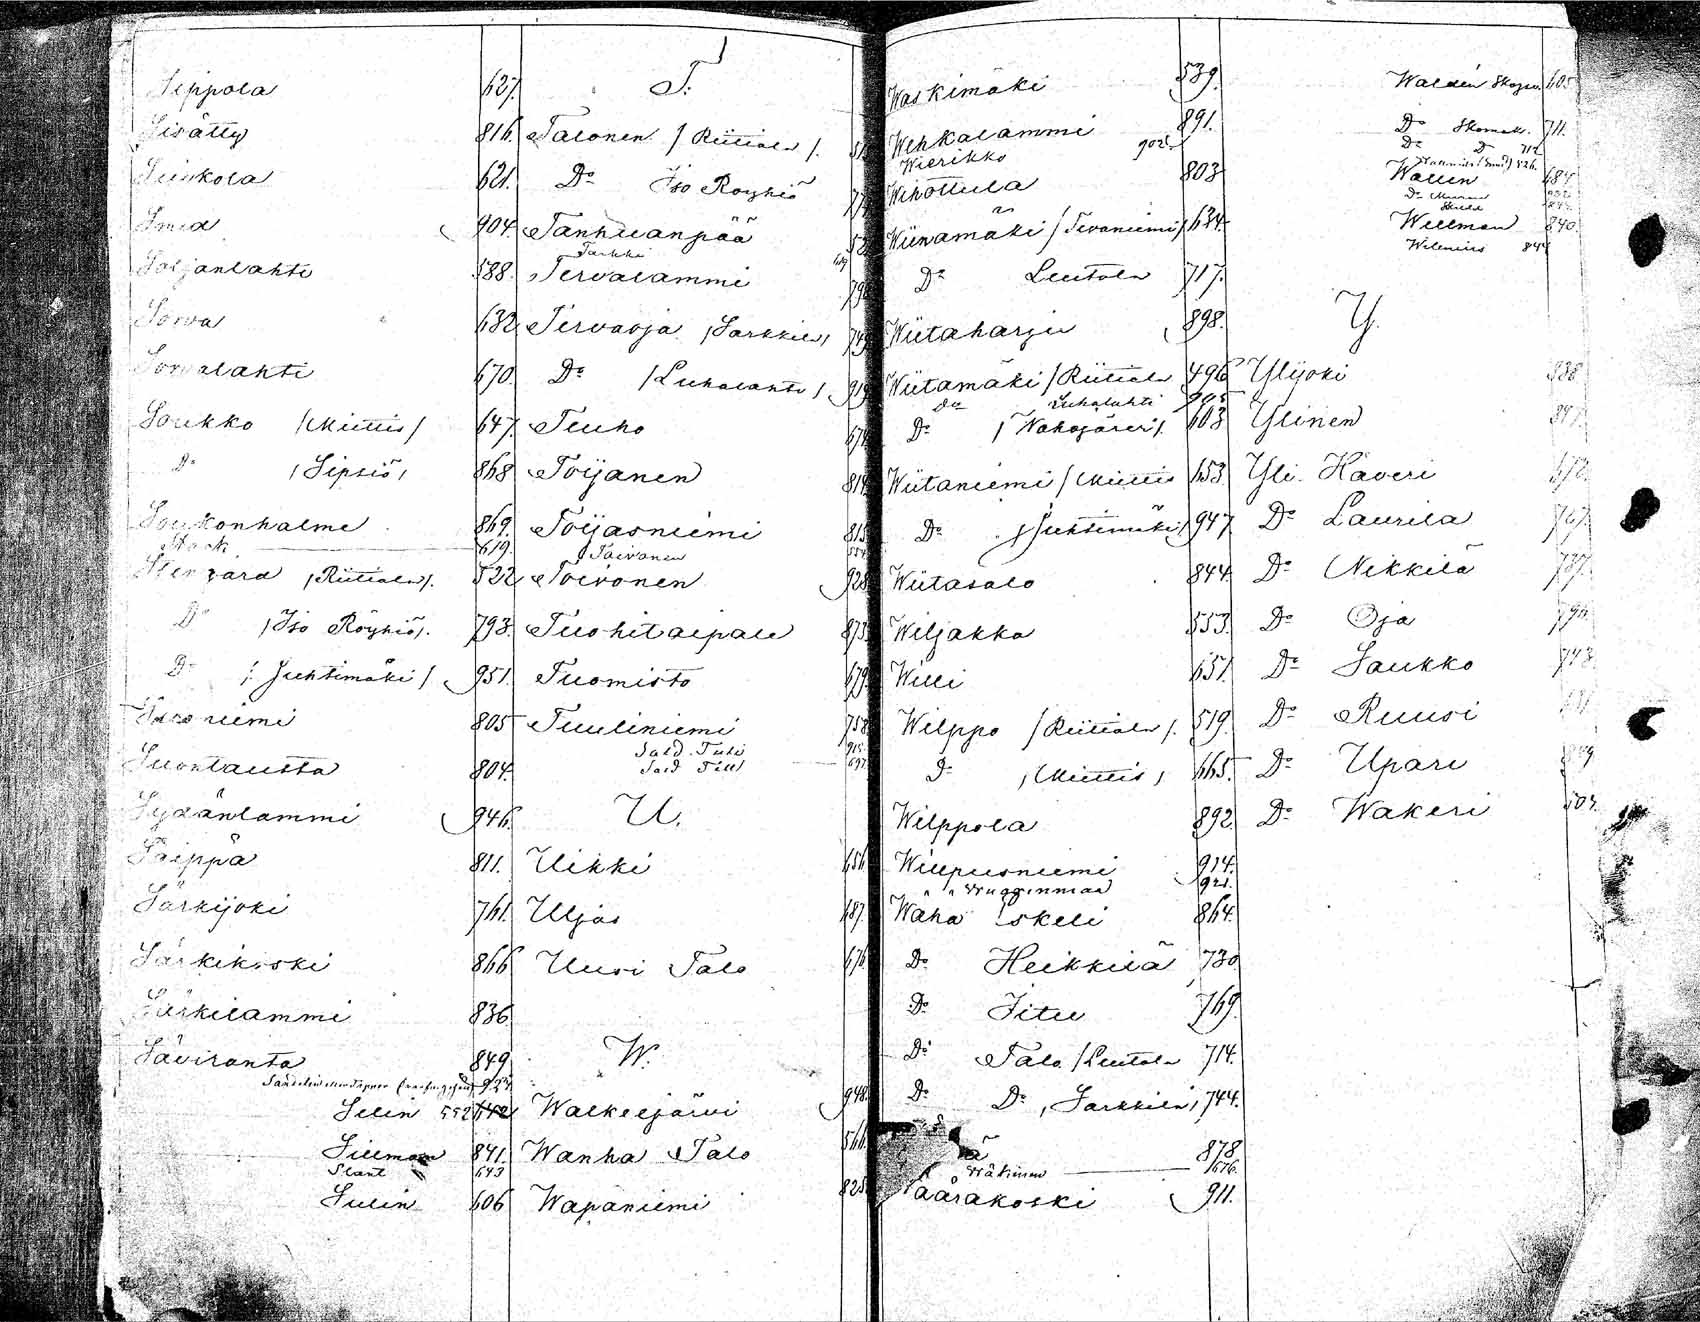 Seppola 627.
Sisätty 816.
Siukola 621.
Smed 904.
Soljanlahti 588.
Sorva 632
Sorvalahti 670.
Soukko /Miettis/ 647.
Do /Sipsiö/ 868
Soukonhalme 869.
Stark 619.
Stengård /Riitiala/. 522
Do /Iso Röyhiö/. 793.
Do /Juhtimäki/ 951.
Suoniemi 805
Suontausta 804.
Sydänlammi 946.
Säippä 811.
Särkijoki 761.
Särkikoski 866
Särkilammi 836.
Säviranta 849
Selin 552
Sillman 841.
Slant 643
Sulin 606
T.
Talonen /Riitiala/.
Do Iso Röyhiö
Tanhuanpää
Tarkki
Tervalammi
Tervaoja /Sarkkila/ 749
Do /Luhalahti/ 919
Teuho 674
Toijanen 814
Toijasniemi 815
Taivonen
Toivonen 928
Tuohitaipale 873
Tuomisto 679
Tuuliniemi 758
Sold. Tuli
Sold Till
U.
Uikki 656
Uljas 687.
Uusi Talo 676
W.
Walkeejärvi 948.
Wanha Talo 566.
Wapaniemi 825
Waskimäki 539.
Wehkalammi 891.
Wierikko 902
Wihottula 803
Wiinamäki /Tevaniemi/ 634.
Do Leutola 717.
Wiitaharju 898.
Wiitamäki /Riitiala 496
Do Luhalahti
Do /Wahojärvi/. 603
Wiitaniemi /Miettis 653.
Do /Juhtimäki/ 947
Wiitasalo 844.
Wiljakka 553.
Willi 651.
Wilppo /Riitiala/. 519.
Do /Miettis/ 665.
Wilppola 892.
Wiupusniemi 914.
921.
Wäha Iskeli 864.
Do Heikkilä 730
Do Iitu 769.
Do Talo /Leutola 714.
Do Do /Sarkkila/ 744.
ä 878
Wäkinen 616.
äärakoski 911.
Waldén Skogv. 605
Do Skomak. 711.
Do D 712
Wallin 684
Willman 840.
Wilenius
Y.
Ylijoki 588
Ylinen 847.
Yli Häveri 672.
Do Laurila 767.
Do Nikkilä 737.
Do Oja
Do Saukko 743.
Do Ruusi
Do Upari
Do Wakeri 504.